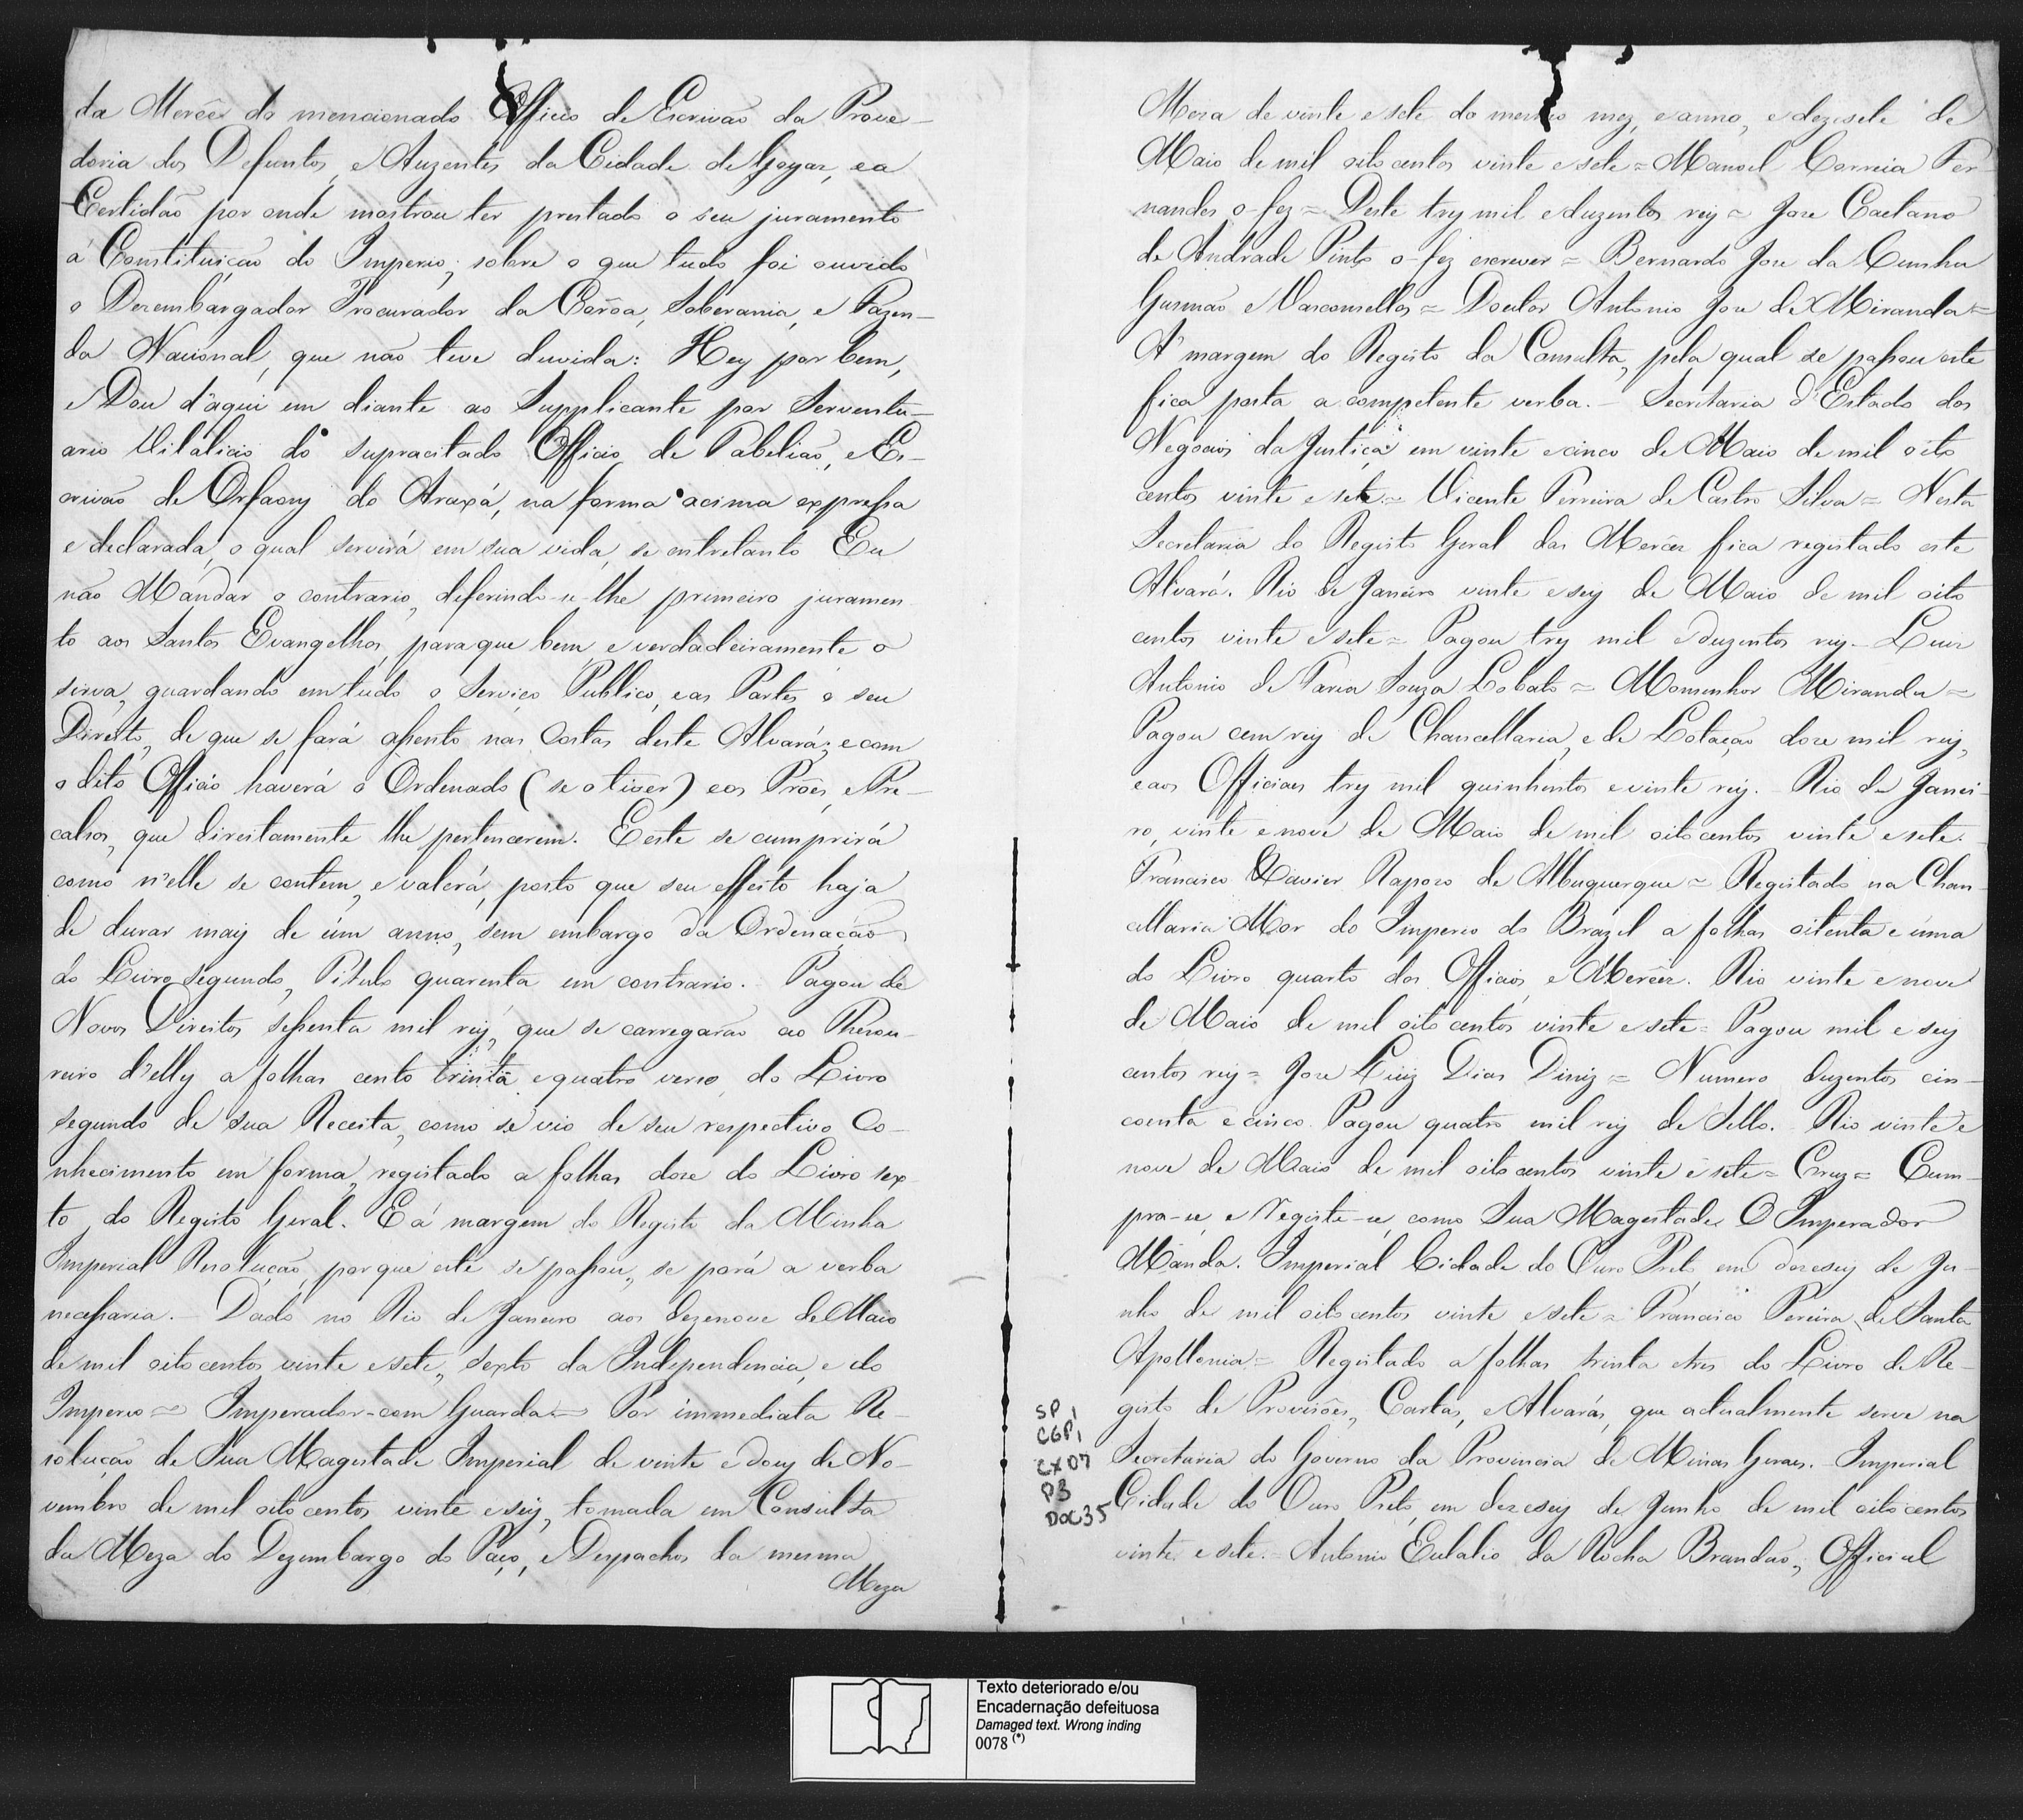 da Mercêe do mencionado Officio de Escrivaõ da Prove-
doria dos Defuntos, e Auzentes da Cidade de Goyaz, ea
Certidaõ por onde mostrou ter prestado o seu juramento
á Constituiçaõ do Imperio; sobre o que tudo foi ouvido
o Dezembargador Procurador da Corôa, Soberania, e Fazen-
da Nacional, que naõ teve duvida: Hey por bem,
e Dou d'aqui em diante ao Supplicante por Serventu-
ario Vitalicio do supracitado Officio de Tabeliaõ, e Es-
crivaõ de Orfaons do Araxá, na forma acima expressa
e declarada, o qual servirá em sua vida, se entretanto Eu
naõ Mandar o contrario, deferindo-se-lhe primeiro juramen
to aos Santos Evangelhos, paraque bem, e verdadeiramente o
sirva, guardando em tudo o Serviço Publico, e as Partes o seu
Direito, de que se fará assento nas Costas deste Alvará; e com
o dito Officio haverá o Ordenado (se o tiver) e os Próes, e Pre-
calsos, que direitamente lhe pertencerem. E este se cumprirá
como n'elle se contem, e valerá, posto que seu effeito haja
de durar mais de úm anno, sem embargo da Ordenaçaõ
do Livro segundo, Titulo quarenta em contrario. Pagou de
Novos Direitos sessenta mil reis, que se carregaraõ ao Thesou-
reiro d'elles a folhas cento trinta e quatro verso do Livro
segundo de sua Receita, como se vio de seu respectivo Co-
nhecimento em forma, registado a folhas doze do Livro sex
to do Registo Geral. E á margem do Registo da Minha
Imperial Resoluçaõ, porque este se passou, se porá a verba
necessaria. - Dado no Rio de Janeiro aos dezenove de Maio
de mil oito centos vinte e sete, sexto da Independencia, e do
Imperio = Imperador-com Guarda = Por immediata Re-
soluçaõ de Sua Magestade Imperial de vinte e dous de No-
vembro de mil oito centos vinte e seis, tomada em Consulta
da Meza do Dezembargo do Paço, e Despachos da mesma
Meza
Meza de vinte e sete do mesmo mez, e anno, e dezesete de
Maio de mil oito centos vinte e sete = Manoel Correia Fer-
nandes o-fez = Deste tres mil e duzentos reis = Joze Caetano
de Andrade Pinto o-fez escrever = Bernardo Joze da Cunha
Gusmaõ e Vasconsellos = Doutor Antonio Joze de Miranda =
A' margem do Registo da Consulta, pela qual se passou este
fica posta a competente verba. - Secretaria d'Estado dos
Negocios da Justiça em vinte e cinco de Maio de mil oito
centos vinte e sete. = Vicente Ferreira de Castro Silva = Nesta
Secretaria do Registo Geral das Mercês fica registado este
Alvará. Rio de Janeiro vinte e seis de Maio de mil oito
centos vinte e sete = Pagou tres mil e duzentos reis - Luiz
Antonio de Faria Souza Lobato = Monsenhor Miranda =
Pagou cem reis de Chancellaria, e de Lotaçaõ doze mil reis,
e aos Officiaes tres mil quinhentos e vinte reis. - Rio de Janei-
ro, vinte e nove de Maio de mil oito centos vinte e sete.
Francisco Xavier Rapozo de Albuquerque = Registado na Chan
cellaria Mor do Imperio do Brazil a folhas oitenta e úma
do Livro quarto dos Officios, e Mercêz. Rio vinte e nove
de Maio de mil oito centos vinte e sete = Pagou mil e seis
centos reis = Joze Luiz Dias Diniz = Numero duzentos cin-
coenta e cinco. Pagou quatro mil reis de Sello. Rio vinte e
nove de Maio de mil oito centos vinte e sete = Cruz = Cum-
pra-se, e registe-se, como Sua Magestade O Imperador
Manda. Imperial Cidade do Ouro Preto em dezeseis de Ju-
nho de mil oito centos vinte e sete = Francisco Pereira de Santa
Apollonia = Registado a folhas trinta e tres do Livro de Re-
gisto de Provisões, Cartas, e Alvarás, que actualmente serve na
Secretaria do Governo da Provincia de Minas Geraes. - Imperial
Cidade do Ouro Preto, em dezeseis de Junho de mil oito centos
vinte e sete. - Antonio Eulalio da Rocha Brandaõ, Official
SP1
CGP1
CX07
P3
DOC35
Texto deteriorado e/ou
Encadernação defeituosa
Damaged text. Wrong inding
0078 (*)